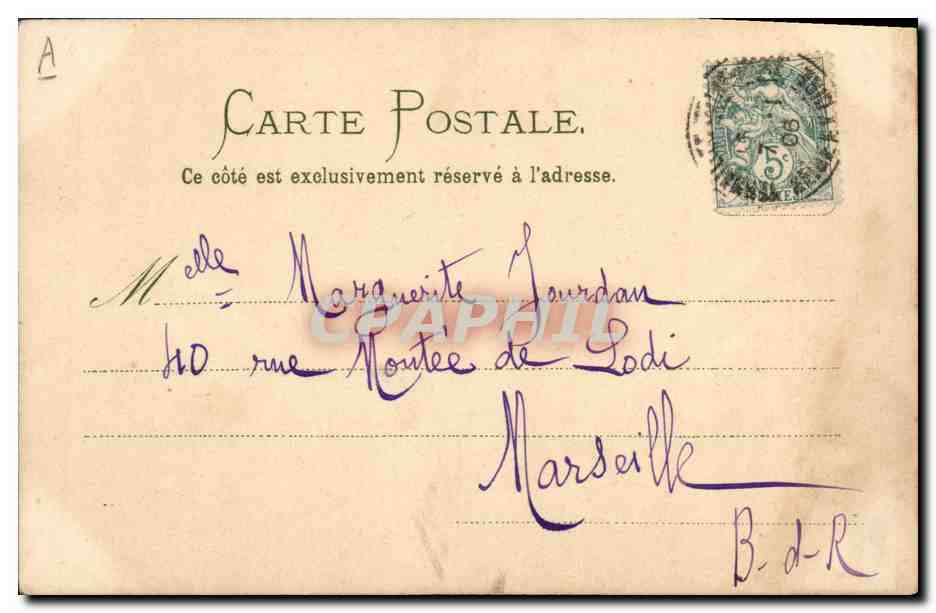 A
CARTE POSTALE.
Ce côté est exclusivement réservé à l'adresse.
5c
06
Melle Marguerite Jourdan
CPAPHIL
40 rue Montée de Lodi
Marseille
B-d-R